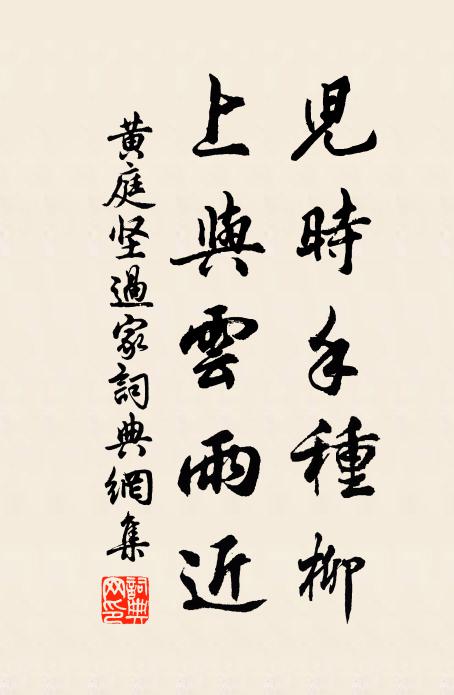 兒時手種柳
上與雲雨近
黄庭坚過家詞典網集
詞典网印